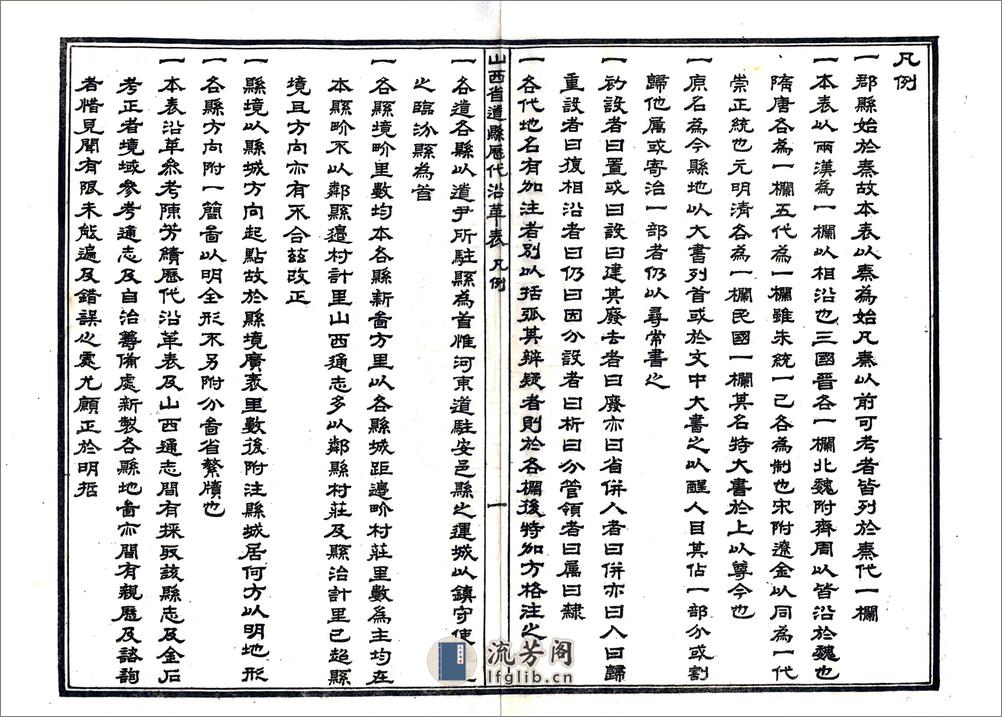 凡例
一郡縣始於秦故本表以秦為始凡秦以前可考者皆列於秦代一欄
一本表以兩漢為一欄以相沿也三國晉各一欄北魏附齊周以皆沿於魏也
隋唐各為一欄五代為一欄雖未統一已各為制也宋附遼金以同為一代
崇正統也元明清各為一欄民國一欄其名特大書於上以尊今也
一原名為今縣地以大書列首或於文中大書之以醒人目其佔一部分或割
歸他属或寄治一部者仍以尋常書之
一初設者曰置或曰設曰建其廢去者曰廢亦曰省併入者曰併亦曰入曰歸
重設者曰復相沿者曰仍曰因分設者曰析曰分管領者曰属曰隸
一各代地名有加注者別以括弧其辯疑者則於各欄後特加方格注之
山西省道縣歷代沿革表 凡例
一
一各道各縣以道尹所駐縣為首惟河東道駐安邑縣之運城以鎮守使
之臨汾縣為首
一各縣境畍里數均本各縣新啚方里以各縣城距邉畍村莊里數為主均在
本縣畍不以鄰縣邉村計里山西通志多以鄰縣村莊及縣治計里已越縣
境且方向亦有不合茲改正
一縣境以縣城方向起點故於縣境廣袤里數後附注縣城居何方以明地形
一各縣方向附一簡啚以明全形不另附分啚省繁牘也
一本表沿革参考陳芳績歷代沿革表及山西通志間有採取該縣志及金石
考正者境域參考通志及自治籌備處新製各縣地啚亦間有親歷及諮詢
者惜見聞有限未能遍及錯誤之處尤願正於明哲
流芳阁
lfglib.cn